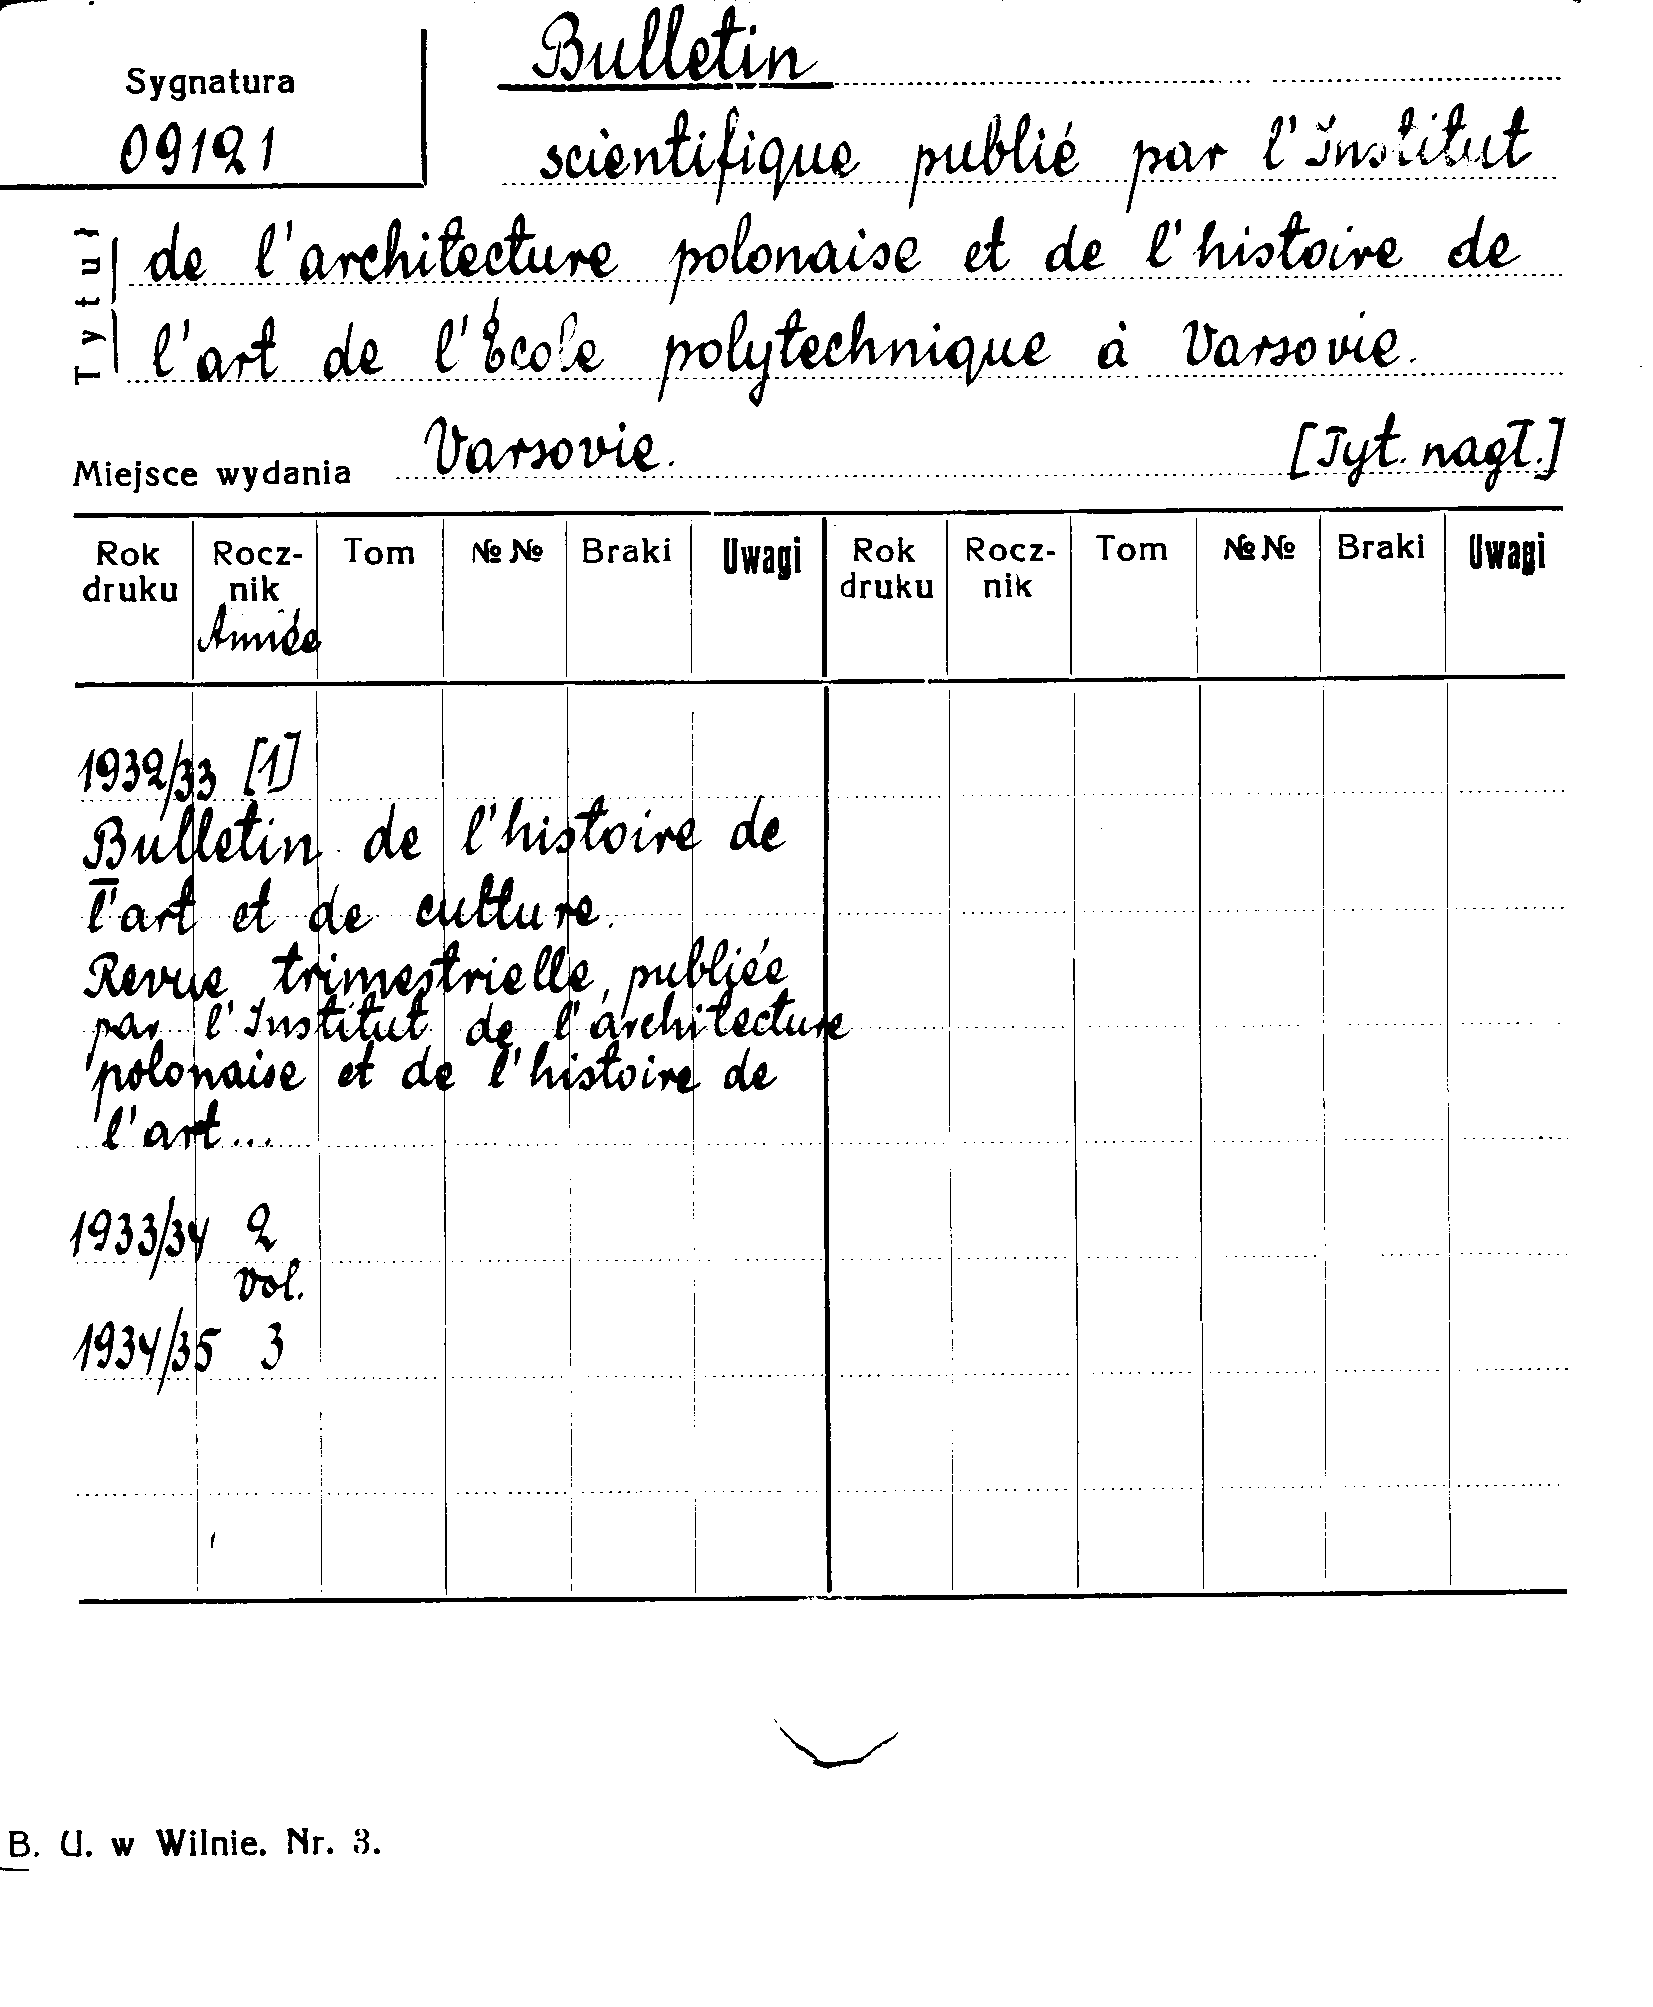 Bulletin
Sygnatura
09121
scientifique publié par l'Institut
de l'architecture polonaise et de l'histoire de
l'art de l'École polytechnique à Varsovie.
Tytuł
Miejsce wydania Varsovie. [Tyt. nagł.]
Rok druku Rocz-nik Tom №№ Braki Uwagi Rok druku Rocz-nik Tom №№ Braki Uwagi
Année
1932/33 [1]
Bulletin de l'histoire de
l'art et de culture.
Revue trimestrielle, publiée
par l'Institut de l'architecture
polonaise et de l'histoire de
l'art...
1933/34 2
Vol.
1934/35 3
B. U. w Wilnie. Nr. 3.